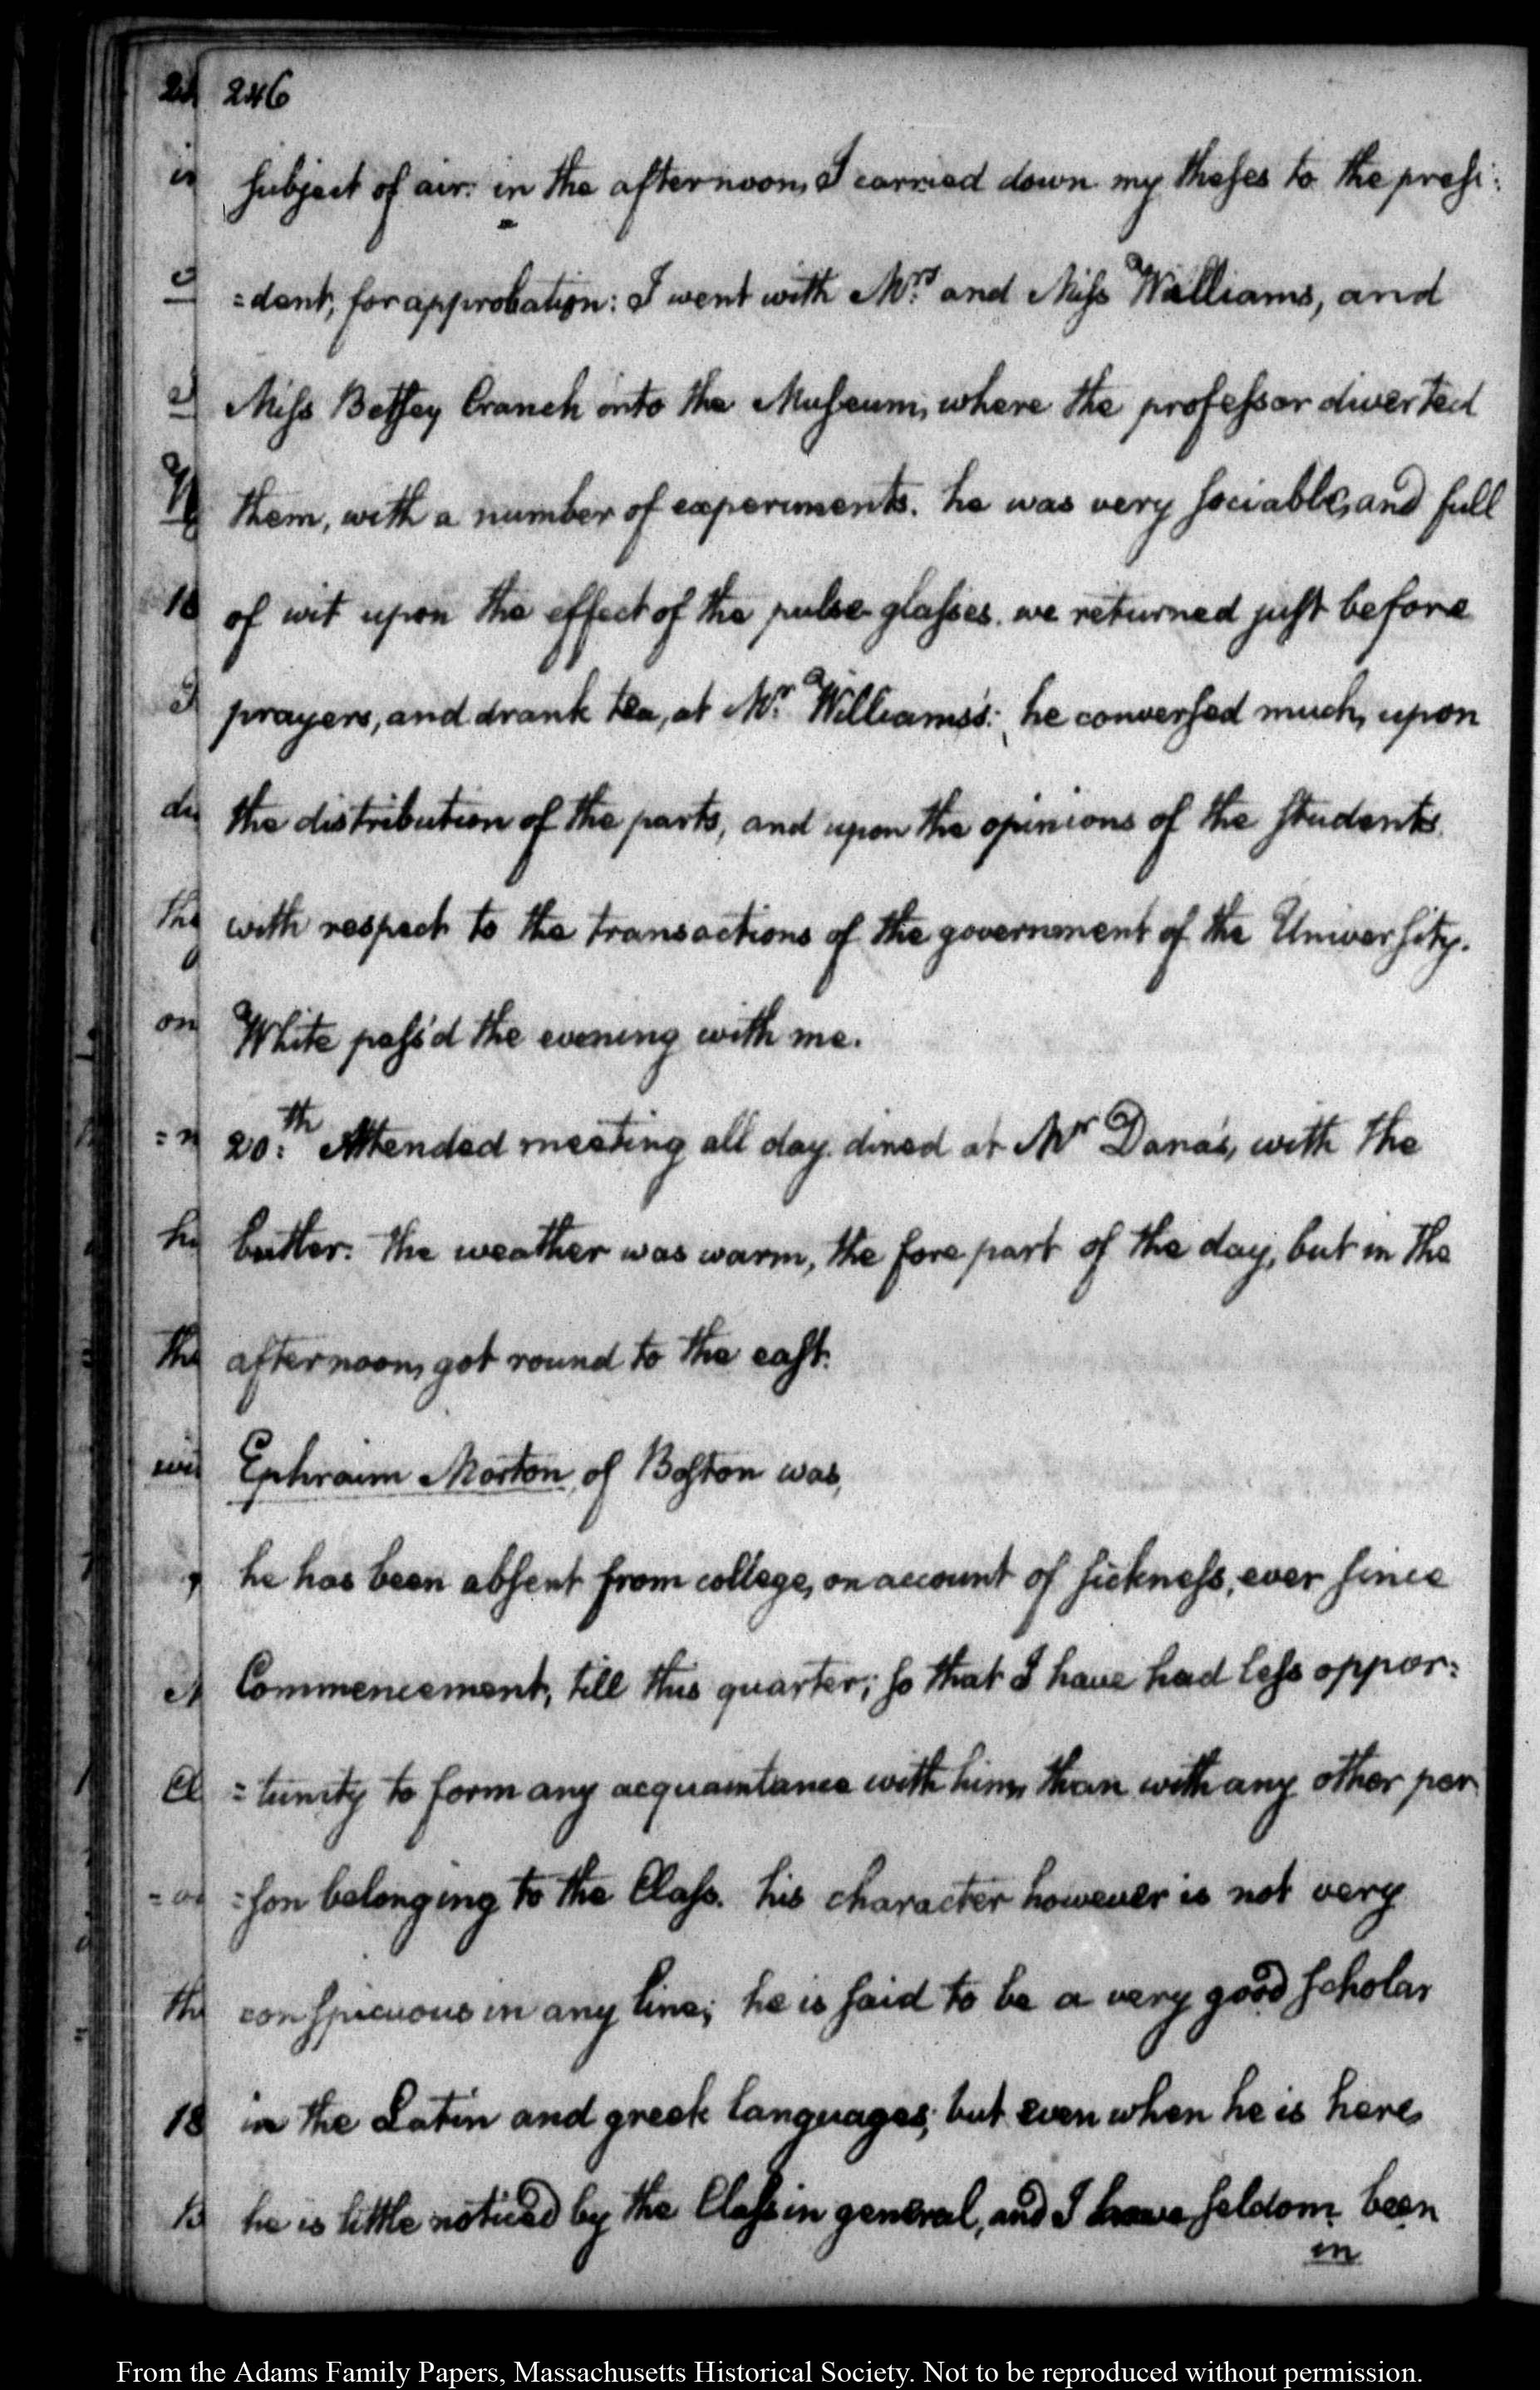 246
subject of air: in the afternoon, I carried down my theses to the presi:
=dent, for approbation: I went with Mrs. and Miss Williams, and
Miss Betsey Cranch onto the Museum, where the professor diverted
them, with a number of experiments. he was very sociable, and full
of wit upon the effect of the pulse glasses. we returned just before
prayers, and drank tea, at Mr. Williams's: he conversed much, upon
the distribution of the parts, and upon the opinions of the students
with respect to the transactions of the government of the University.
White pass'd the evening with me.
20.th Attended meeting all day. dined at Mr Dana's, with the
butler. The weather was warm, the fore part of the day, but in the
afternoon, got round to the east.
Ephraim Morton, of Boston was,
he has been absent from college, on account of sickness, ever since
Commencement, till this quarter; so that I have had less oppor:
=tunity to form any acquaintance with him, than with any other per
=son belonging to the Class. his character however is not very
conspicuous in any line; he is said to be a very good scholar
in the Latin and greek languages; but even when he is here,
he is little noticed by the Class in general, and I have seldom been
in
From the Adams Family Papers, Massachusetts Historical Society. Not to be reproduced without permission.